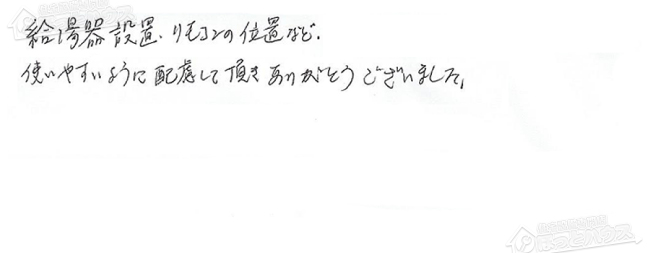 給湯器設置.リモコンの位置など.
使いやすいように配慮して頂きありがとうございました。